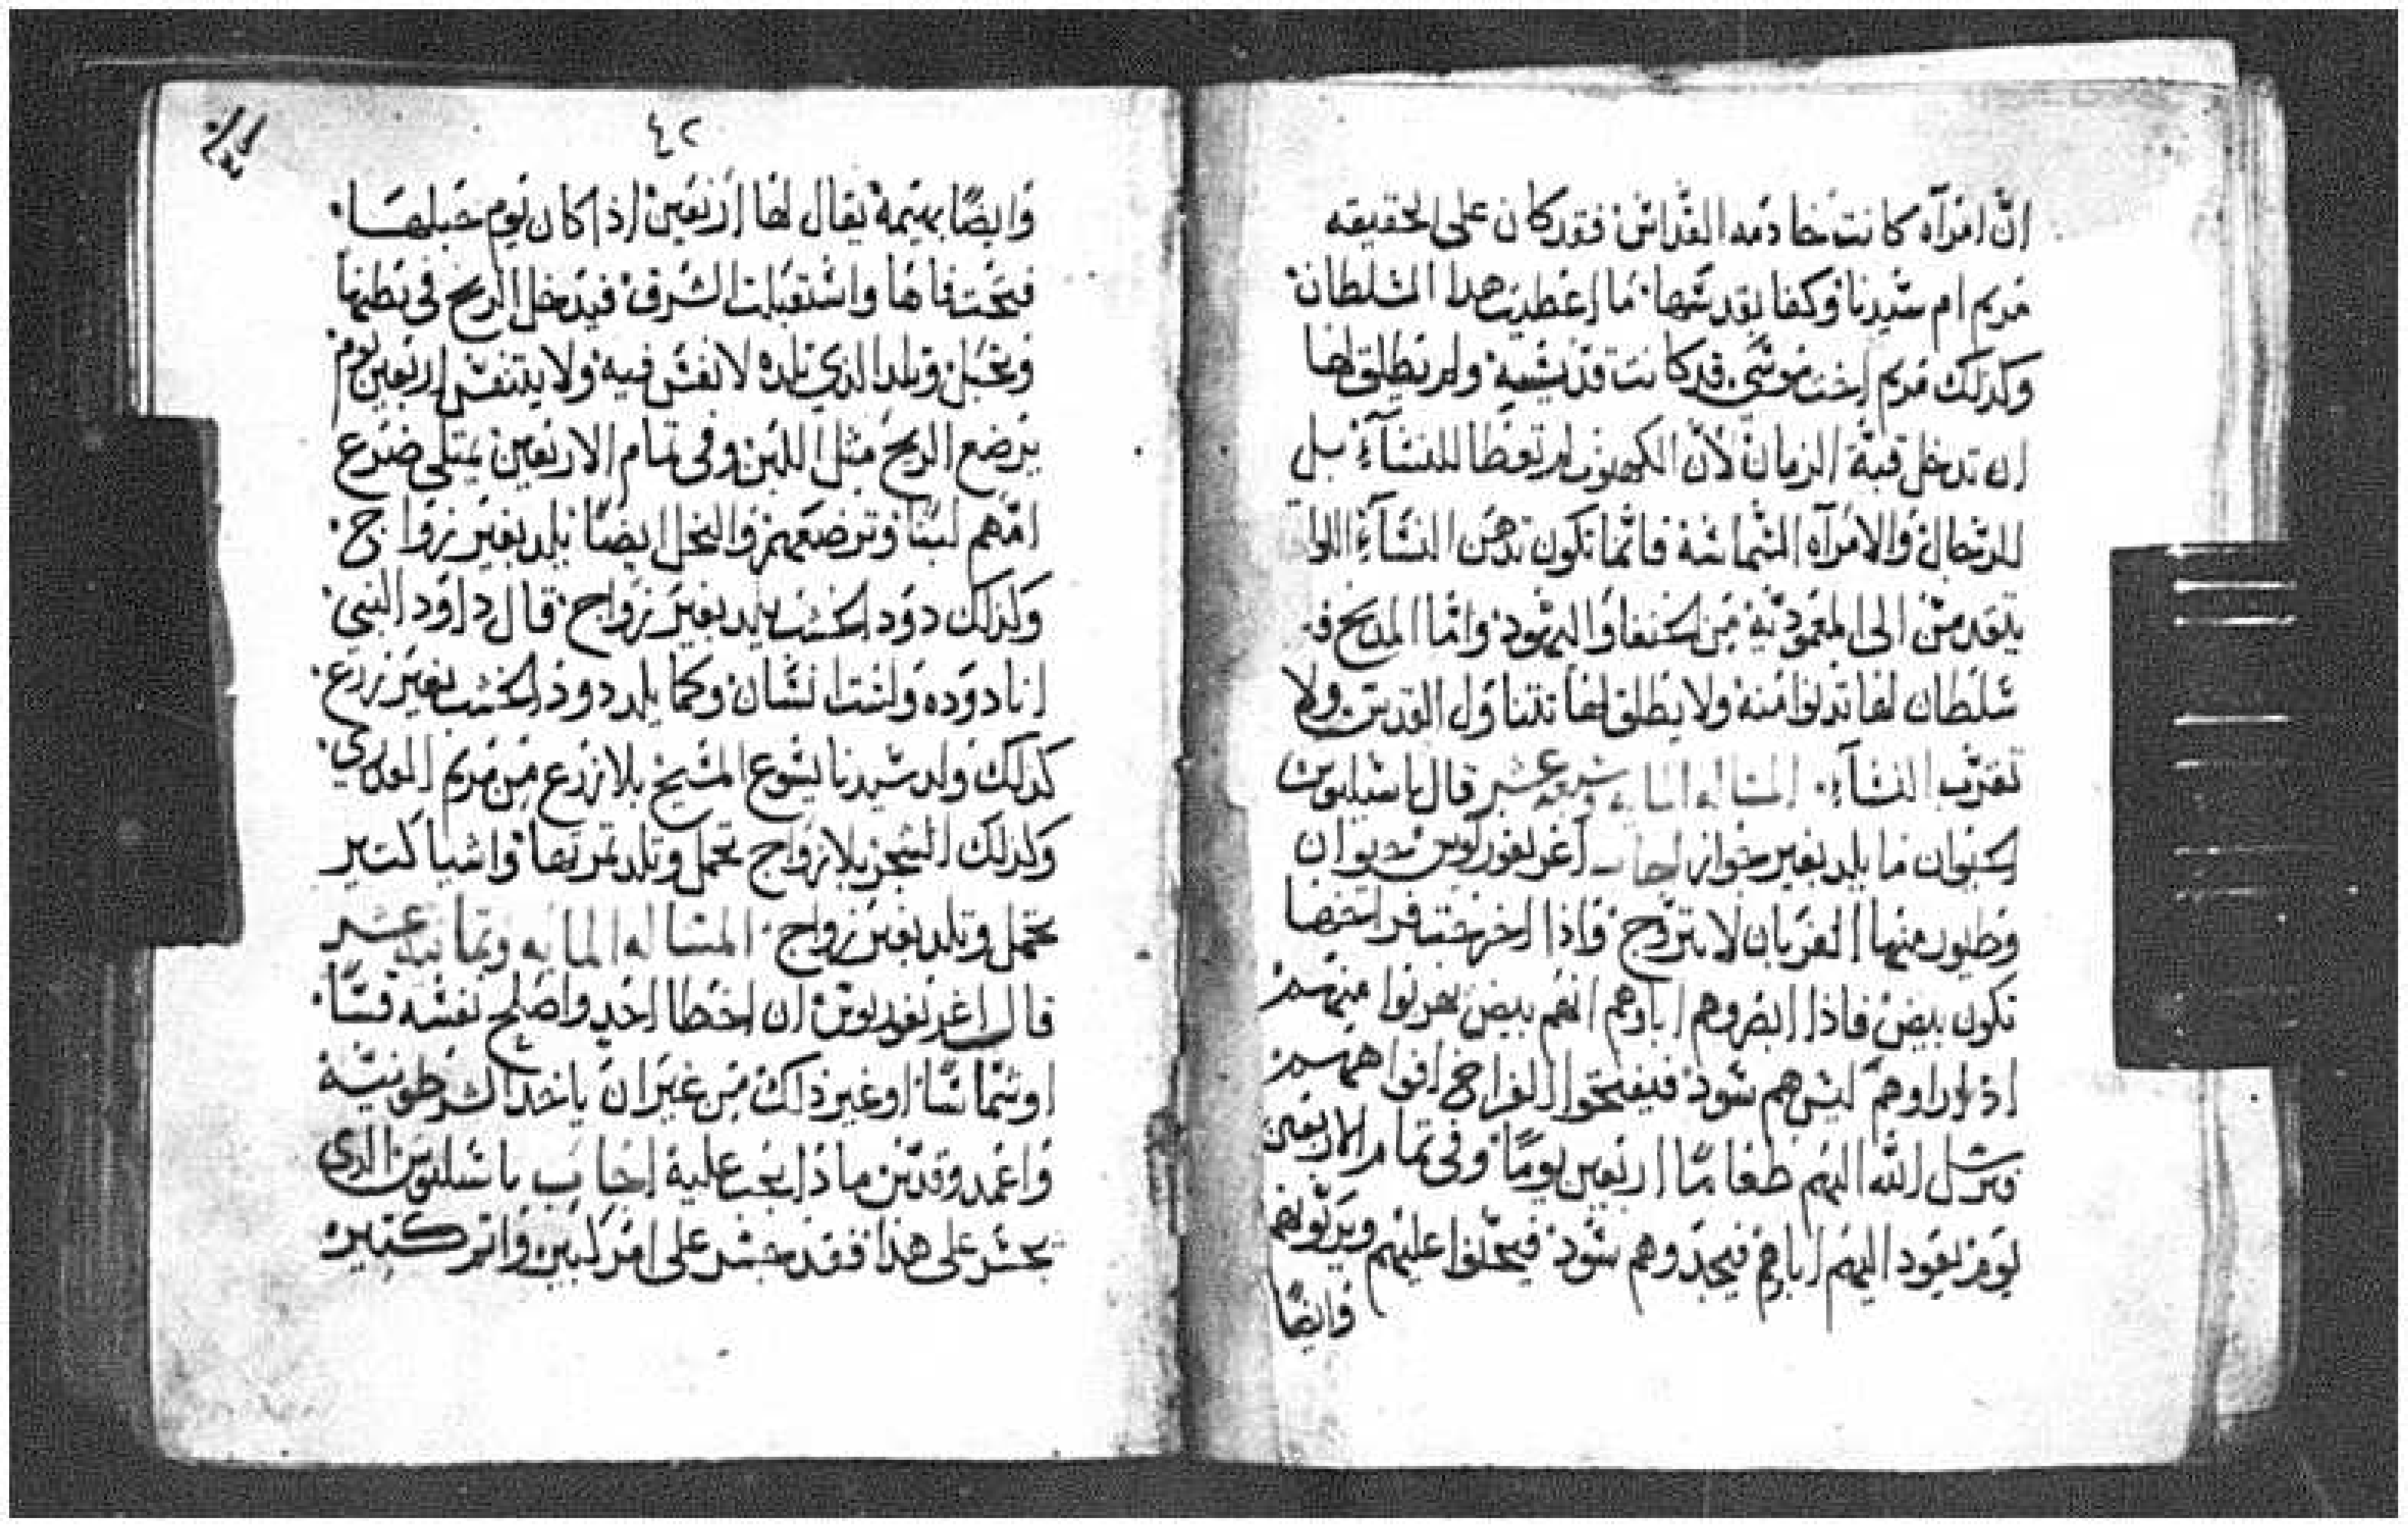 ان امرآه كانت خادمه القداس فقد كان على الحقيقه
مريم ام سيدنا وكفا بقدسها ما اعطيت هدا السلطان
وكدلك مريم اخت موسى قد كانت قديسه ولم يطلق لها
ان تدخل قبة الزمان لان الكهنوت لم تعطا للنسآء بل
للرجال والامرآه الشماسه فانما تكون تدهن النسآء اللوا
يتقدمن الى المعمودية من الحنفا واليهود واما المدبح فـ
سلطان لها تدنوا منه ولا يطلق لها تتناول القدس ولا
تقرب النسآء المساله المايه وسبعه عشر قال باسيليوس
الحيوان ما يلد بغير جواز اجاب اغريغوريوس حيوان
وطيور منها الغربان لا يتزوج واذا اخرجت فراخها
تكون بيض فاذا ابصروهم اباوهم انهم بيض يهربوا منهم
اذ راوهم ليس هم سود فيفتحوا الفراخ افواههم
فيرسل الله اليهم طعاما اربعين يوما وفى تمام الاربعين
يوم يعود اليهم اباهم فيجدوهم سود فيحنوا عليهم ويربونهم
وايضا
٤٢
وايضا بهيمة يقال لها اربعين اذا كان يوم حبلها
فتحت فاها واستقبلت الشرق فيدخل الريح فى بطنها
وتحبل وتلد الذي تلده لا نفس فيه ولا يتنفس اربعين يوم
يرضع الريح مثل اللبن وفى تمام الاربعين يمتلى ضرع
امهم لبنا وترضعهم والنحل ايضا يلد بغير زواج
وكذلك دود الخشب يلد بغير زواج قال داود النبي
انا دوده ولست انسان وكما يلد دود الخشب بغير زرع
كذلك ولد سيدنا يسوع المسيح بلا زرع من مريم العدرى
وكذلك الشجر بلا زواج تحمل وتلد ثمرتها واشيا كتير
تحمل وتلد بغير زواج المساله المايه وثمانيه عشر
قال اغريغوريوس ان اخطا احد واصلح نفسه قسا
او شماسا او غير ذلك من غير ان ياخد الشرطونية
واعمد وقدس ماذا يجب عليه اجاب باسليوس الدى
يجسر على هذا فقد جسر على امر كبير واثم كتير